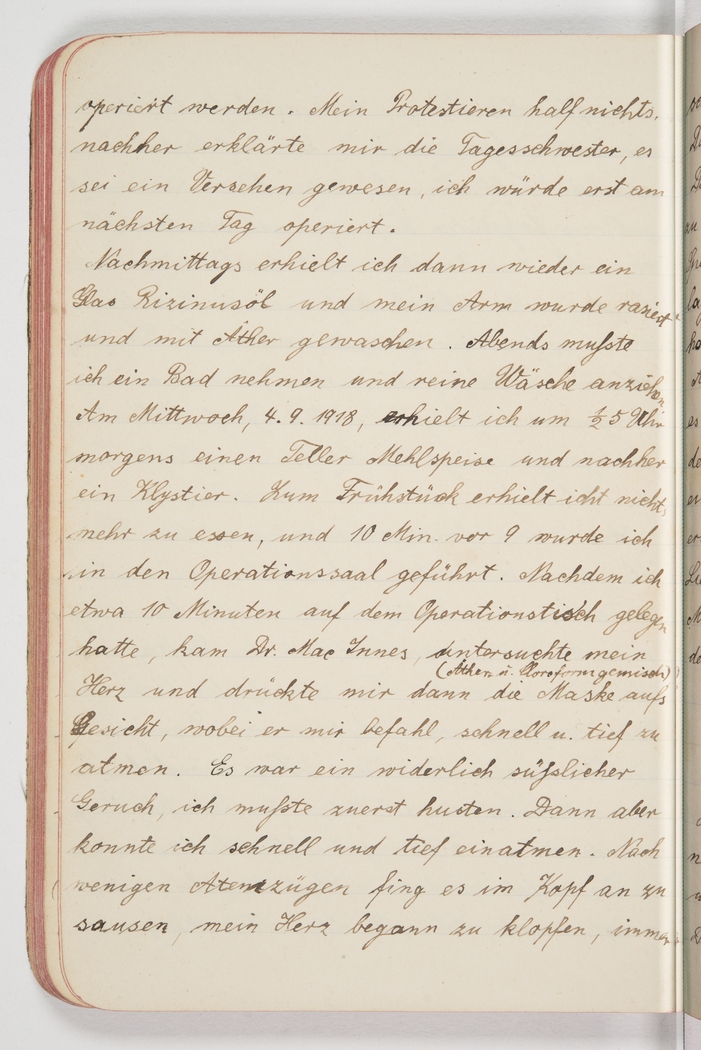 operiert werden. Mein Protestieren half nichts.
nachher erklärte mir die Tagesschwester, es
sei ein Versehen gewesen, ich würde erst am
nächsten Tag operiert.
Nachmittags erhielt ich dann wieder ein
Glas Rizinusöl und mein Arm wurde rasiert
und mit Äther gewaschen. Abends mußte
ich ein Bad nehmen und reine Wäsche anziehen
Am Mittwoch, 4. 9. 1918, erhielt ich um ½ 5 Uhr
morgens einen Teller Mehlspeise und nachher
ein Klystier. Zum Frühstück erhielt icht nichts
mehr zu essen, und 10 Min. vor 9 wurde ich
in den Operationssaal geführt. Nachdem ich
etwa 10 Minuten auf dem Operationstisch gelegen
hatte, kam Dr. Mac Innes, untersuchte mein
(Äther u. Cloroformgemisch)
Herz und drückte mir dann die Maske aufs
Gesicht, wobei er mir befahl, schnell u. tief zu
atmen. Es war ein widerlich süßlicher
Geruch, ich mußte zuerst husten. Dann aber
konnte ich schnell und tief einatmen. Nach
wenigen Atemzügen fing es im Kopf an zu
sausen, mein Herz begann zu klopfen, immer